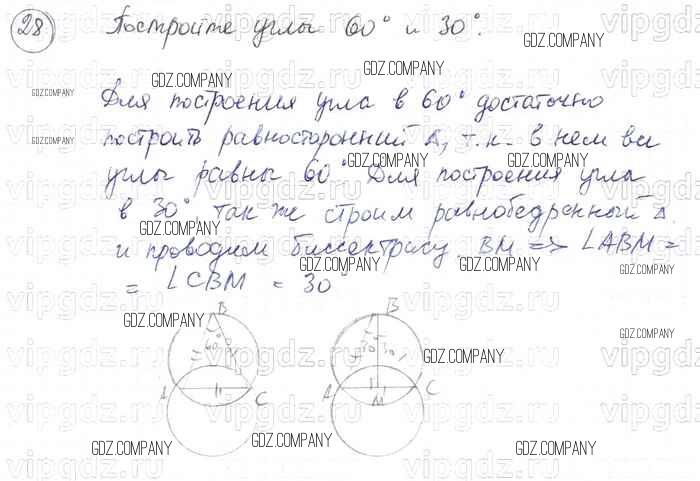 28 Постройте углы 60° и 30°.
Для построения угла в 60° достаточно
построить равносторонний Δ, т.к. в нем все
углы равны 60° Для построения угла
в 30°, так же строим равнобедренный Δ.
и проводим биссектрису BM => ∠ABM =
= ∠CBM = 30°
B
A
C
B
A
M
C
GDZ.COMPANY
vipgdz.ru